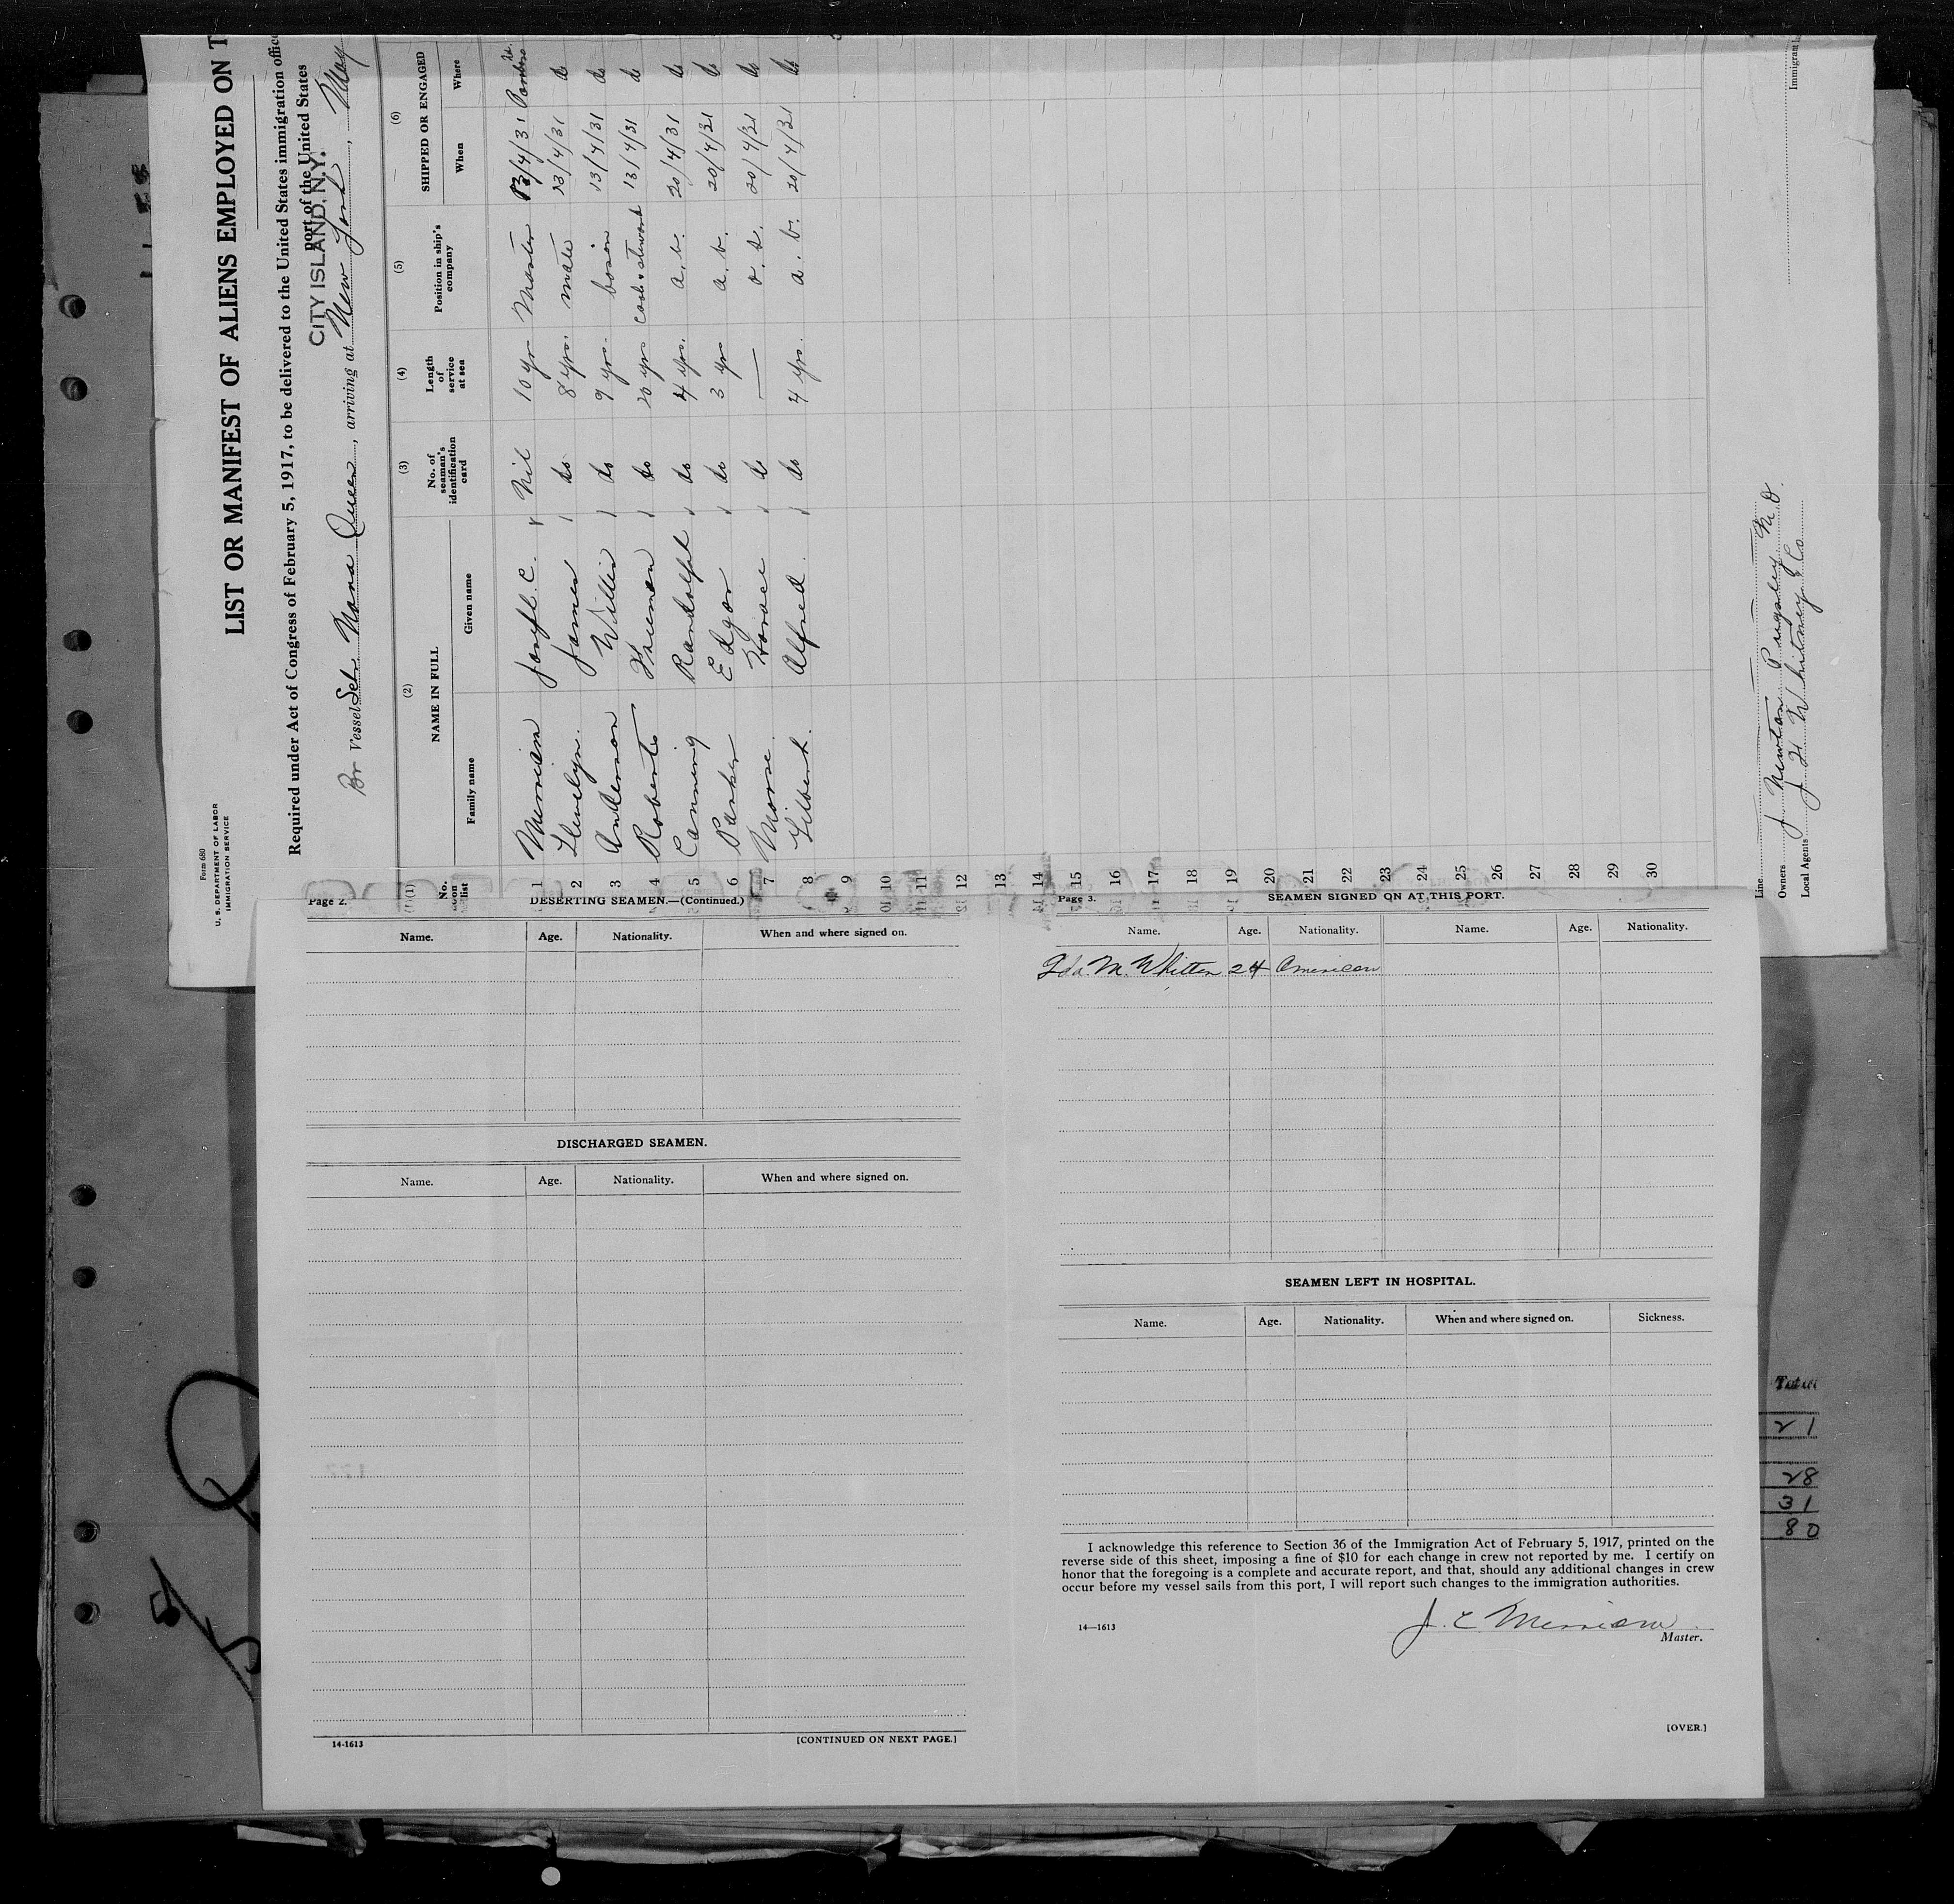 Form 680
U. S. DEPARTMENT OF LABOR
IMMIGRATION SERVICE
LIST OR MANIFEST OF ALIENS EMPLOYED ON T
Required under Act of Congress of February 5, 1917, to be delivered to the United States immigration offic
port of the United States
CITY ISLAND, N.Y.
Br Vessel Sch. Nona Queen, arriving at New York, May
(1) (2) (3) (4) (5) (6)
No. on list NAME IN FULL No. of seaman's identification card Length of service at sea Position in ship's company SHIPPED OR ENGAGED
Family name Given name When Where
1 Merriam C. Nil 10 yr Master 13/4/31
2 Llewelyn. James do 8 yrs. mate 13/4/31 do
3 Anderson Willis do 9 yrs. bosun 13/4/31 do
4 Roberts Freeman do 20 yrs cook & steward 13/4/31 do
5 Canning Randolph do 4 yrs. a. b. 20/4/31 do
6 Parker Edgar do 3 yrs a. b. 20/4/31 do
7 Morse. Horace do — o. s. 20/4/31 do
8 Gilbert. Alfred do 4 yrs. a. b. 20/4/31 do
9
10
11
12
13
14
15
16
17
18
19
20
21
22
23
24
25
26
27
28
29
30
Line
Owners J Newton Pugsley
Local Agents J. H Whitney & Co
Immigrant
Page 2.
DESERTING SEAMEN.—(Continued.)
Name. Age. Nationality. When and where signed on.
DISCHARGED SEAMEN.
Name. Age. Nationality. When and where signed on.
14-1613
[CONTINUED ON NEXT PAGE.]
Page 3.
SEAMEN SIGNED ON AT THIS PORT.
Name. Age. Nationality. Name. Age. Nationality.
Ida M. Whitten 24 American
SEAMEN LEFT IN HOSPITAL.
Name. Age. Nationality. When and where signed on. Sickness.
I acknowledge this reference to Section 36 of the Immigration Act of February 5, 1917, printed on the
reverse side of this sheet, imposing a fine of $10 for each change in crew not reported by me. I certify on
honor that the foregoing is a complete and accurate report, and that, should any additional changes in crew
occur before my vessel sails from this port, I will report such changes to the immigration authorities.
J. C Merriam
14—1613
Master.
[OVER.]
Total
21
28
31
80